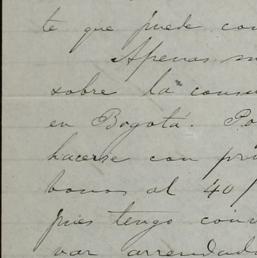 te que puede con
Apenas su
sobre la consu
en Bogotá. Po
hacerse con pri
bonos al 40/
pues tengo conv
var arrendada